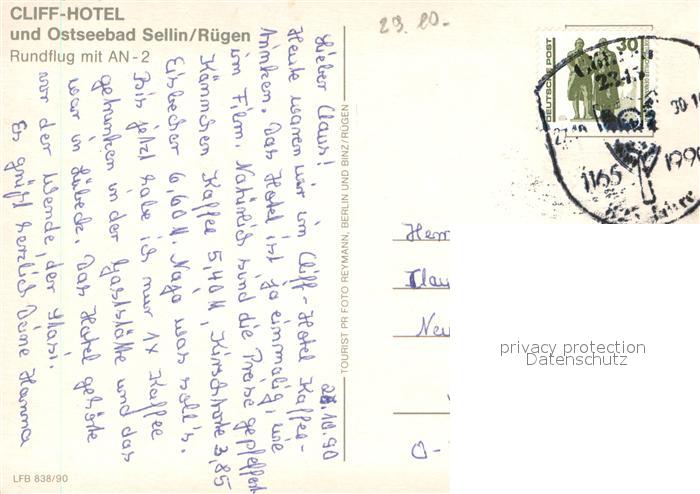 CLIFF-HOTEL
und Ostseebad Sellin/Rügen
Rundflug mit AN-2
29. 10-
DEUTSCHE POST
30
30.10
1165
1990
.10.90
Lieber Claus!
Heute waren wir im Cliff-Hotel Kaffee-
trinken. Das Hotel ist ja einmalig, wie
im Film. Natürlich sind die Preise gepfeffert
Kännchen Kaffee 5,40 M, Kirschtorte 3,85
Eisbecher 6,60 M. Naja was soll's.
Bis jetzt habe ich nur 1x Kaffee
getrunken in der Gaststätte und das
war in Lübeck. Das Hotel gehörte
vor der Wende, der Stasi.
Es grüßt herzlich Deine Hanna
TOURIST PR FOTO REYMANN, BERLIN UND BINZ/RÜGEN
Clau
Neu
O-
privacy protection
Datenschutz
LFB 838/90